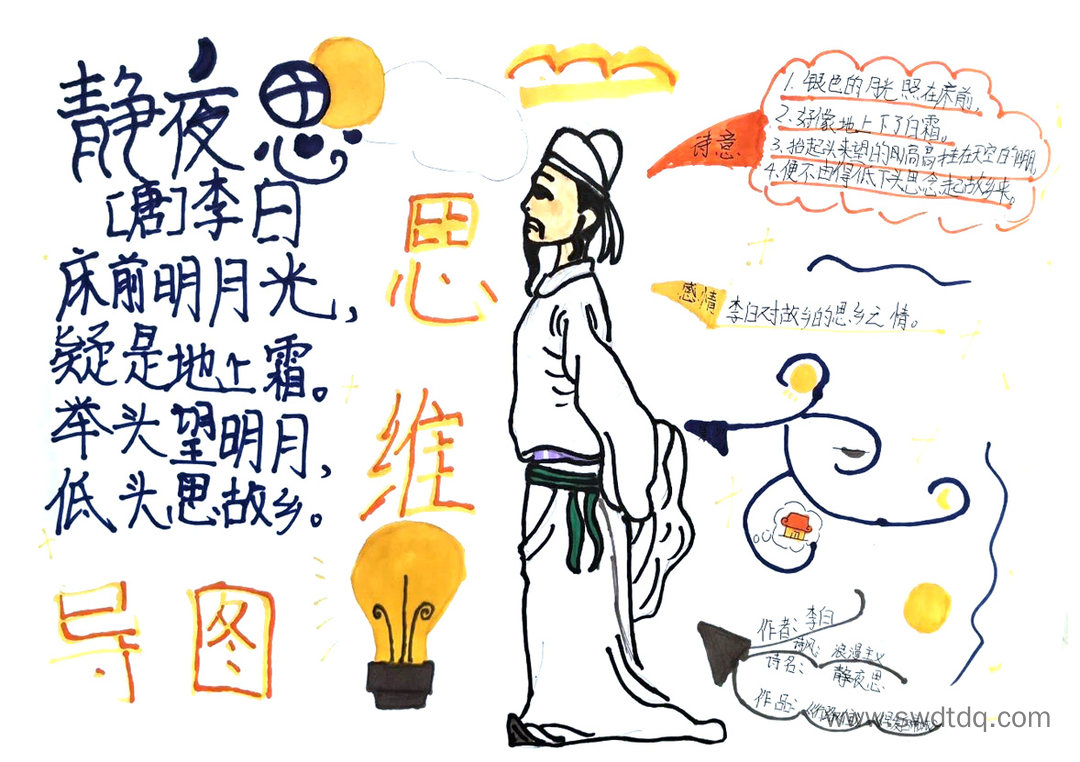 静夜思
[唐]李白
床前明月光，
疑是地上霜。
举头望明月，
低头思故乡。
思
维
导图
诗意
1. 银色的月光照在床前，
2. 好像地上下了白霜。
3. 抬起头来望的月高高挂在天空白明月，
4. 便不由得低下头思念起故乡来。
感情
李白对故乡的思乡之情。
作者：李白
诗风：浪漫主义
诗名：静夜思
作品：
www.swdtdq.com